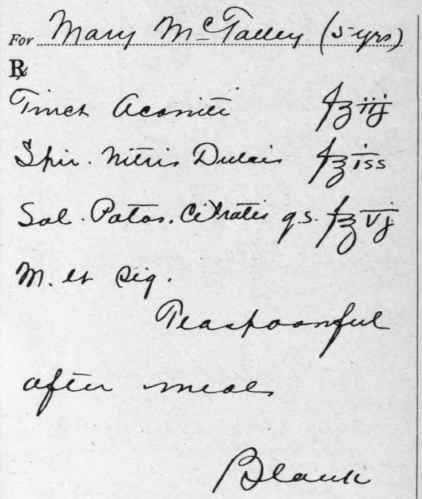 For Mary McTalley (5 yrs)
℞
Tinct Aconiti fʒ iij
Spir. Nitris Dulcis fʒ iss
Sol. Potas. Citratis q.s. fʒ vj
M. et Sig.
Teaspoonful
after meals
Blank